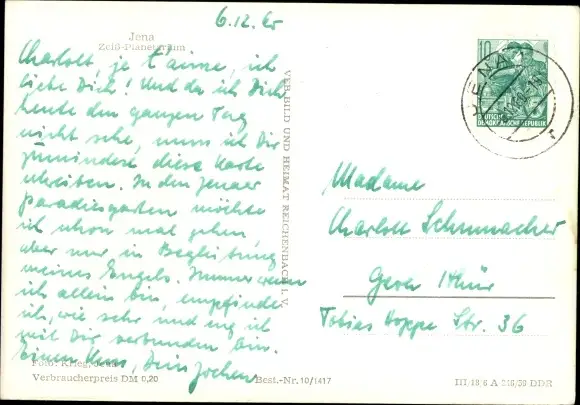 6.12.60
Jena
Zeiß-Planetarium
Charlott, je t'aime, ich
liebe Dich! Und da ich Dich
heute den ganzen Tag
nicht sehe, muss ich Dir
zumindest diese Karte
schreiben. In den Jenaer
Paradiesgarten möchte
ich schon mal gehen,
aber nur in Begleitung
meines Engels. Immer wenn
ich allein bin, empfinde
ich, wie sehr und eng ich
mit Dir verbunden bin.
Einen Kuss, Dein Jochen
Foto: Krieg, Jena
Verbraucherpreis DM 0,20
Best.-Nr. 10/1417
VEB BILD UND HEIMAT REICHENBACH i. V.
10
DEUTSCHE
DEMOKRATISCHE REPUBLIK
JENA
Madame
Charlott Schumacher
Gera Thür
Tobias Hoppe Str. 36
III/18/6 A 216/58 DDR